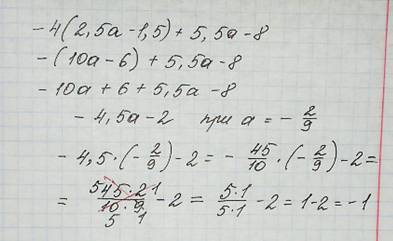 -4(2,5a-1,5)+5,5a-8
-(10a-6)+5,5a-8
-10a+6+5,5a-8
-4,5a-2 при a = -2/9
-4,5·(-2/9)-2 = -45/10·(-2/9)-2 =
= 5 45·2 1/10·9 5 1 -2 = 5·1/5·1 -2 = 1-2 = -1